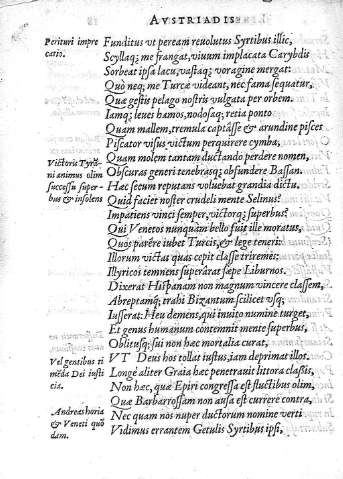 AVSTRIADIS
Perituri impre
catio.
Funditus vt peream reuolutus Syrtibus illic,
Scyllaq; me frangat, viuum implacata Carybdis
Sorbeat ipsa lacu, vastaq; voragine mergat:
Quò neq; me Turcæ videant, nec fama sequatur,
Quæ gestis pelago nostris vulgata per orbem.
Iamq; leues hamos, nodosaq; retia ponto
Quam mallem, tremula captâsse & arundine pisces
Piscator visus, victum perquirere cymba,
Quam molem tantam ductando perdere nomen,
Victoris Tyrã
ni animus olim
successu super
bus & insolens
Obscuras generi tenebrasq; obsundere Bassan.
Hæc secum reputans voluebat grandia dictu.
Quid faciet noster crudeli mente Selinus?
Impatiens vinci semper, victorq; superbus?
Qui Venetos nunquam bello fuit ille moratus,
Quos parêre iubet Turcis, & lege teneri:
Illorum victas quas cepit classe triremes:
Illyricos temnens superârat sæpe Liburnos.
Dixerat Hispanam non magnum vincere classem,
Abreptamq; trahi Bizantum scilicet vsq;
Iusserat: Heu demens, qui inuito numine turget,
Et genus humanum contemnit mente superbus,
Oblitusq; sui non hæc mortalia curat,
Vel gentibus ti
mẽda Dei iusti
cia.
VT Deus hos tollat iustus, iam deprimat illos.
Longè aliter Graia hæc penetrauit littora classis,
Non hæc, quæ Epiri congressa est fluctibus olim,
Andreas huria
& Veneti quõ
dam.
Quæ Barbarossam non ausa est currere contra,
Nec quam nos nuper ductorum nomine verti
Vidimus errantem Getulis Syrtibus ipsi,